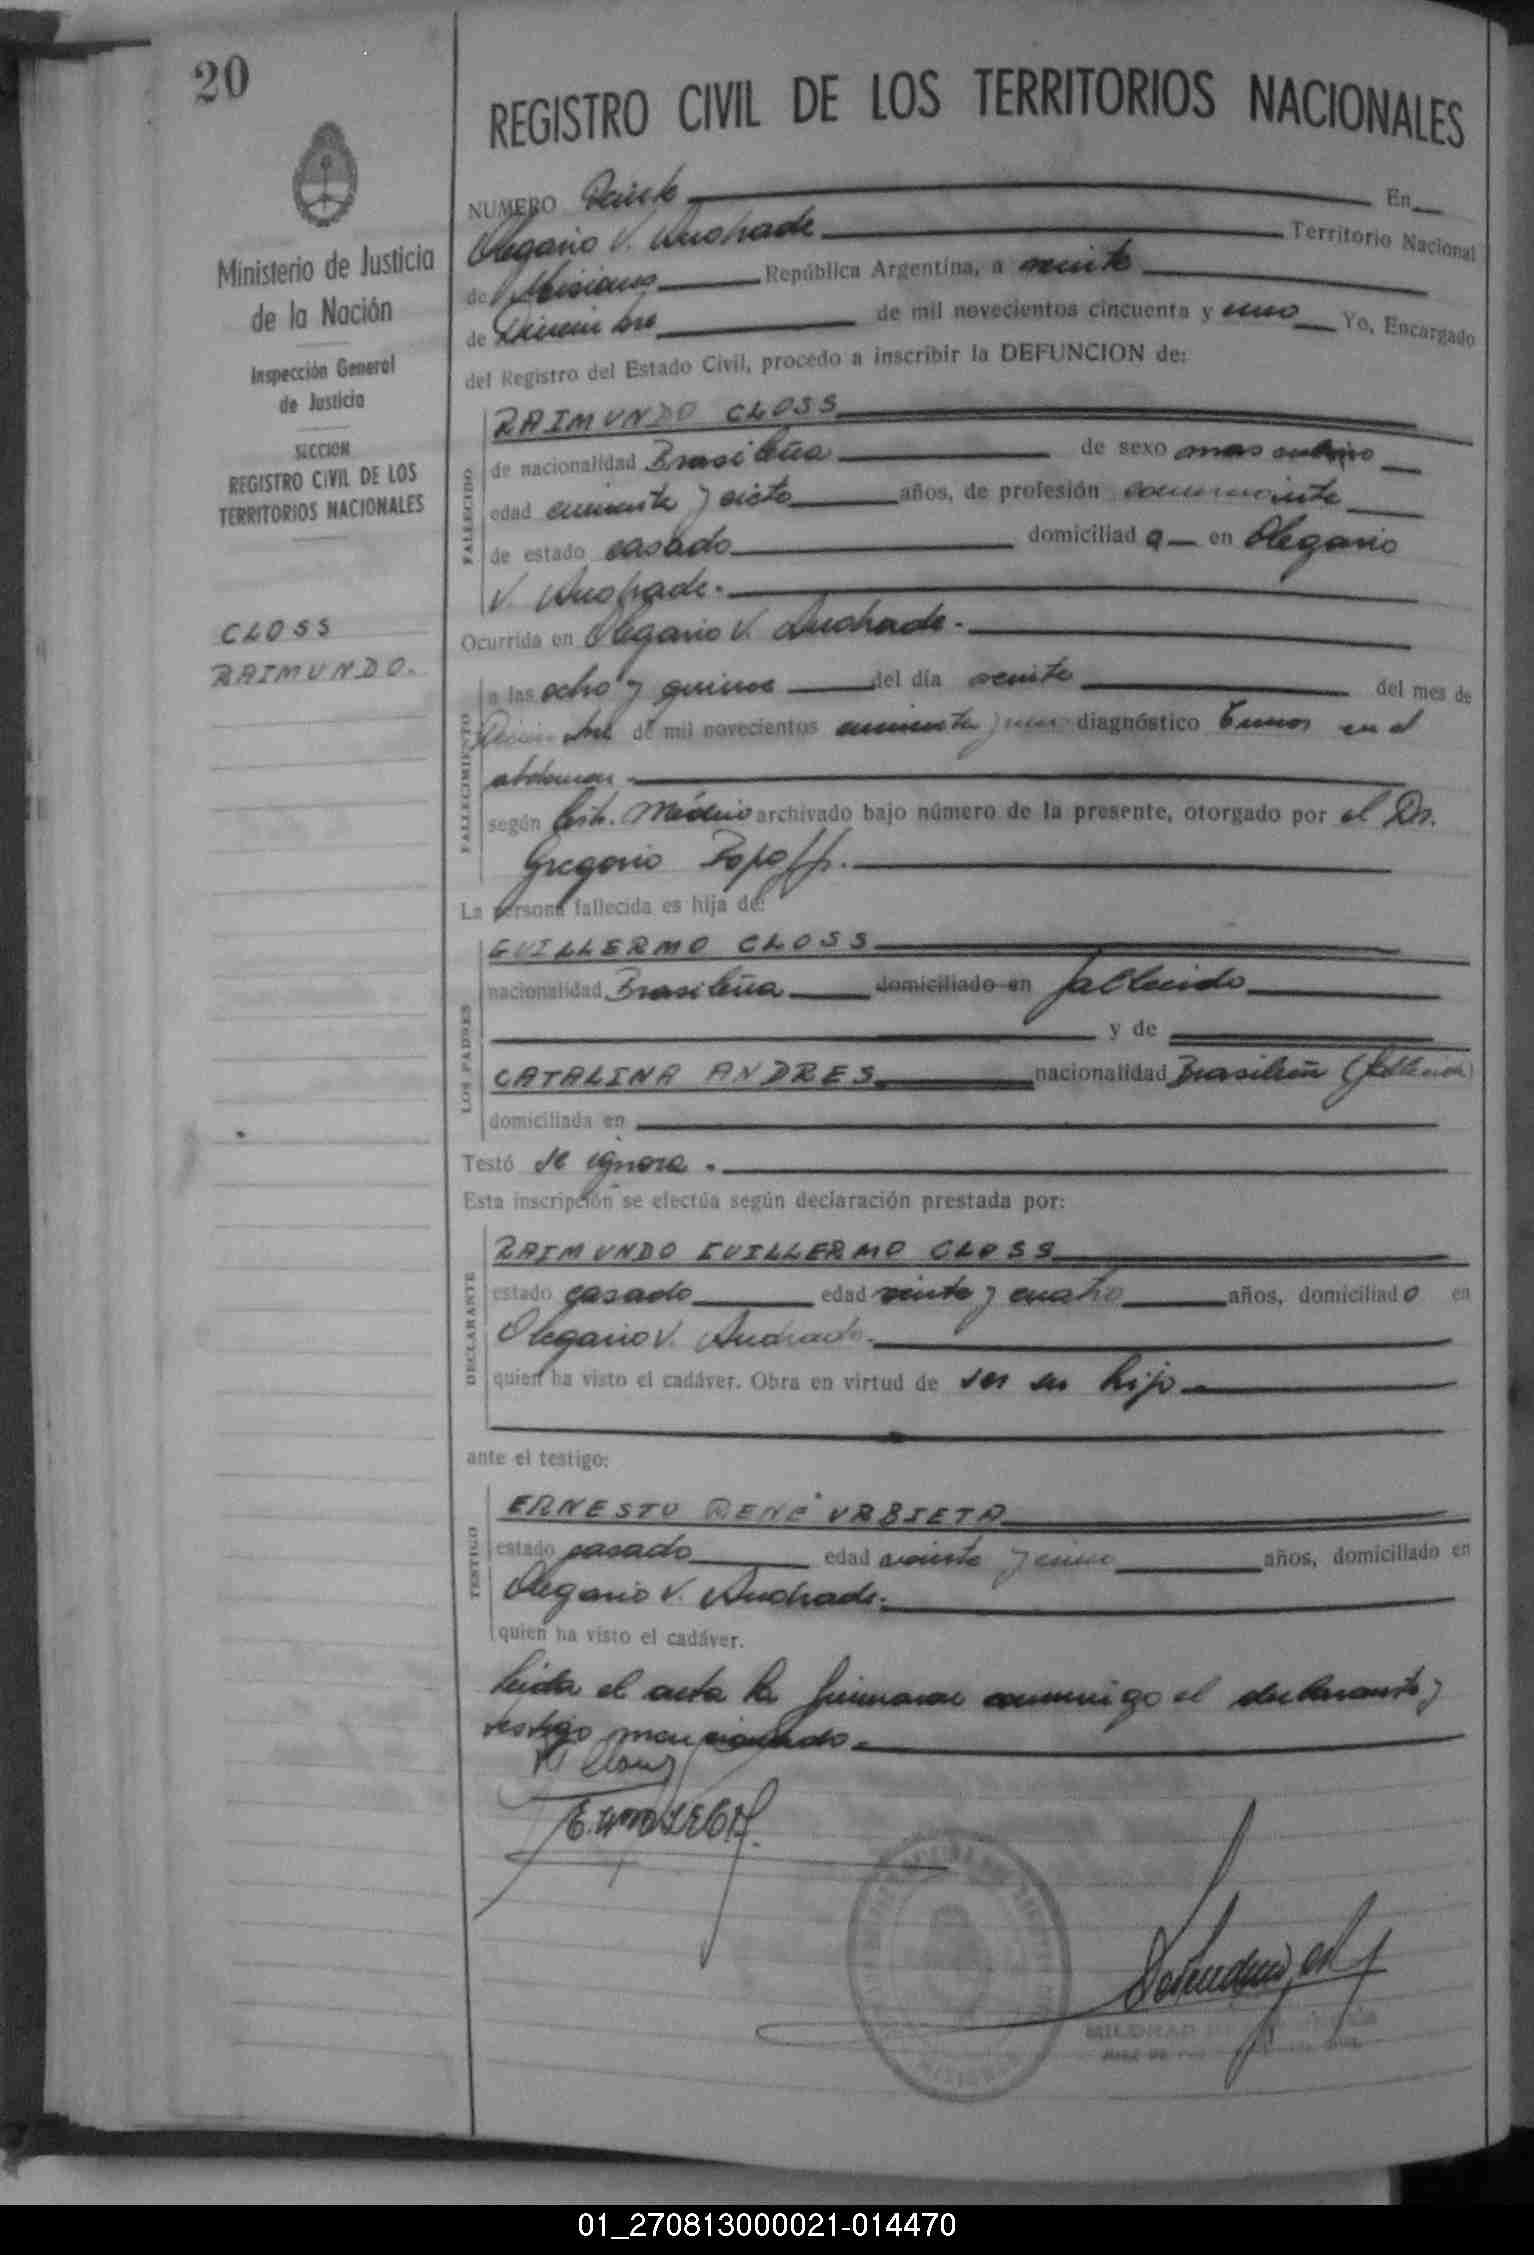 20
Ministerio de Justicia
de la Nación
Inspección General
de Justicia
SECCION
REGISTRO CIVIL DE LOS
TERRITORIOS NACIONALES
CLOSS
RAIMUNDO.
REGISTRO CIVIL DE LOS TERRITORIOS NACIONALES
NUMERO Veinte En
Olegario V. Andrade Territorio Nacional
de Misiones República Argentina, a veinte
de Diciembre de mil novecientos cincuenta y uno Yo, Encargado
del Registro del Estado Civil, procedo a inscribir la DEFUNCION de:
FALLECIDO
RAIMUNDO CLOSS
de nacionalidad Brasileña de sexo masculino
edad cincuenta y siete años, de profesión comerciante
de estado casado domiciliad o en Olegario
V. Andrade.
Ocurrida en Olegario V. Andrade.
FALLECIMIENTO
a las ocho y quince del día veinte del mes de
Diciembre de mil novecientos cincuenta y uno diagnóstico Tumor en el
abdomen
según Cert. Médico archivado bajo número de la presente, otorgado por el Dr.
Gregorio Popoff.
La persona fallecida es hija de:
LOS PADRES
GUILLERMO CLOSS
nacionalidad Brasileña domiciliado en fallecido
y de
CATALINA ANDRES nacionalidad Brasileña (fallecida)
domiciliada en
Testó se ignora.
Esta inscripción se efectúa según declaración prestada por:
DECLARANTE
RAIMUNDO GUILLERMO CLOSS
estado casado edad veinte y cuatro años, domiciliado en
Olegario V. Andrade.
quien ha visto el cadáver. Obra en virtud de ser su hijo
ante el testigo:
TESTIGO
ERNESTO RENÉ URBIETA
estado casado edad veinte y cinco años, domiciliado en
Olegario V. Andrade.
quien ha visto el cadáver.
Leida el acta la firmaron conmigo el declarante y
testigo mencionado.
MISIONES
01_270813000021-014470